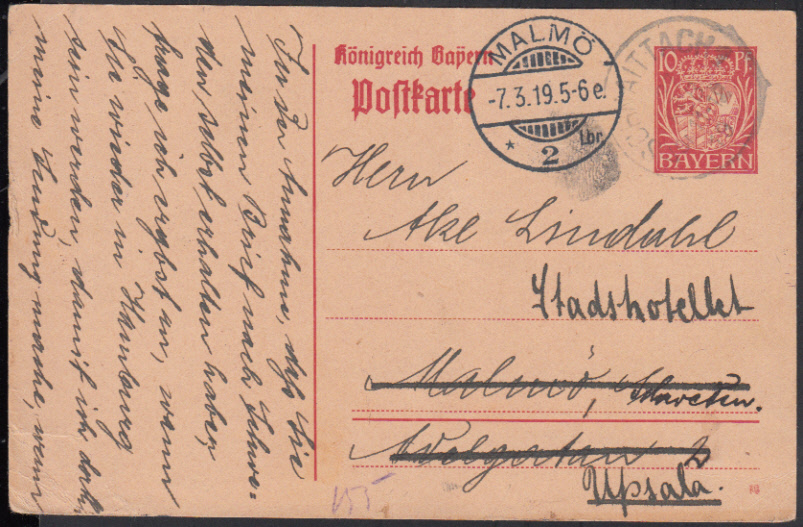 Königreich Bayern
Postkarte
10 Pf
BAYERN
MALMÖ
-7.3.19.5-6 e.
* 2 Lbr.
Herrn
Ake Lindahl
Stadshotellet
Malmö, Schweden.
Adelgatan 2
Upsala.
In der Annahme, daß Sie
meinen Brief nach Schwe-
den selbst erhalten haben,
frage ich ergbst an, wann
Sie wieder in Hamburg
sein werden, damit ich dorthin
meine Sendung mache, wenn